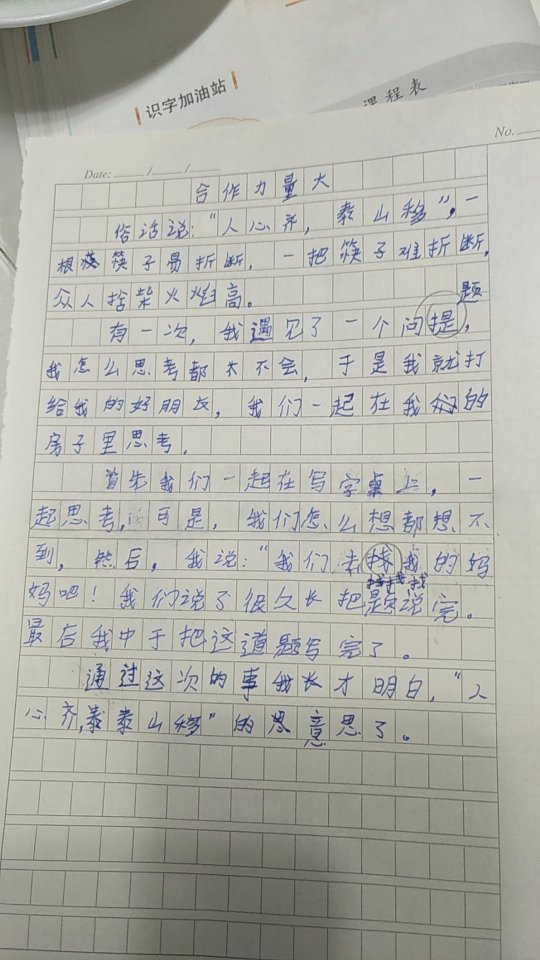 识字加油站
课程表
No.
Date: / /
合作力量大
俗话说：“人心齐，泰山移”，一
根筷子易折断，一把筷子难折断，
众人拾柴火焰高。
题
有一次，我遇见了一个问提，
我怎么思考都不会，于是我就打
给我的好朋友，我们一起在我的
房子里思考。
首先我们一起在写字桌上，一
起思考，可是，我们怎么想都想不
到，然后，我说：“我们去找我的妈
找找找
妈吧！我们说了很久长把题说完。
最后我中于把这道题写完了。
通过这次的事我长才明白，“人
心齐，泰泰山移”的思意思了。